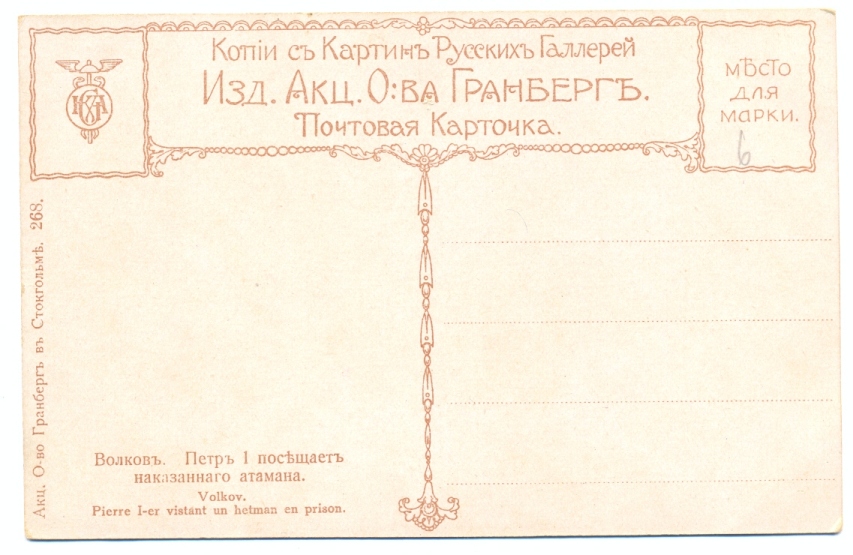 Копіи съ Картинъ Русскихъ Галлерей
Изд. Акц. О:ва Гранбергъ.
Почтовая Карточка.
мѣсто
для
марки.
6
Акц. О-во Гранбергъ въ Стокгольмѣ. 268.
Волковъ. Петръ I посѣщаетъ
наказаннаго атамана.
Volkov.
Pierre I-er vistant un hetman en prison.